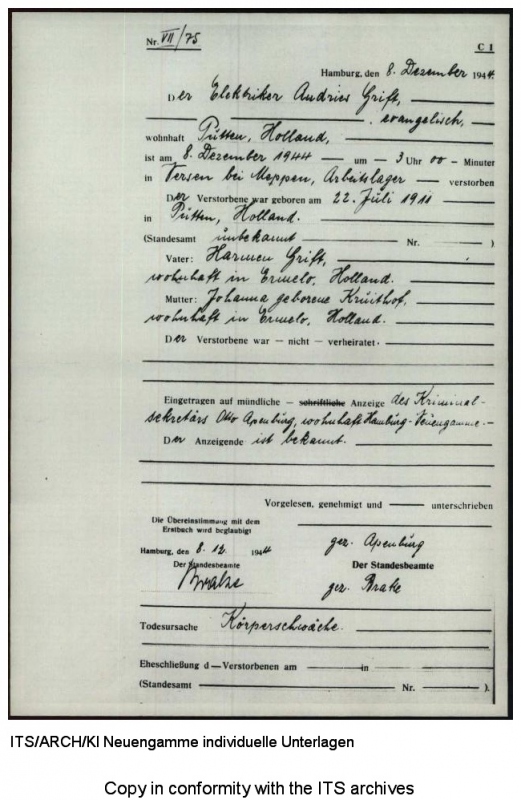 Nr. VII/75
C 1
Hamburg, den 8. Dezember 1944.
Der Elektriker Andries Grift,
, evangelisch,
wohnhaft Pütten, Holland,
ist am 8. Dezember 1944 — um — 3 Uhr 00 — Minuten
in Versen bei Meppen, Arbeitslager — verstorben
Der Verstorbene war geboren am 22. Juli 1911
in Pütten, Holland.
(Standesamt unbekannt — Nr. — )
Vater: Harmen Grift,
wohnhaft in Ermelo, Holland.
Mutter: Johanna geborene Kruithof,
wohnhaft in Ermelo, Holland.
Der Verstorbene war — nicht — verheiratet.
Eingetragen auf mündliche — schriftliche Anzeige des Kriminal-
sekretärs Otto Apenburg, wohnhaft Hamburg-Neuengamme. —
Der Anzeigende ist bekannt.
Vorgelesen, genehmigt und — unterschrieben
Die Übereinstimmung mit dem
Erstbuch wird beglaubigt
gez. Apenburg
Hamburg, den 8. 12. 1944
Der Standesbeamte
Der Standesbeamte
Brake
gez. Brake
Todesursache Körperschwäche.
Eheschließung d — Verstorbenen am — in —
(Standesamt — Nr. — ).
ITS/ARCH/KI Neuengamme individuelle Unterlagen
Copy in conformity with the ITS archives